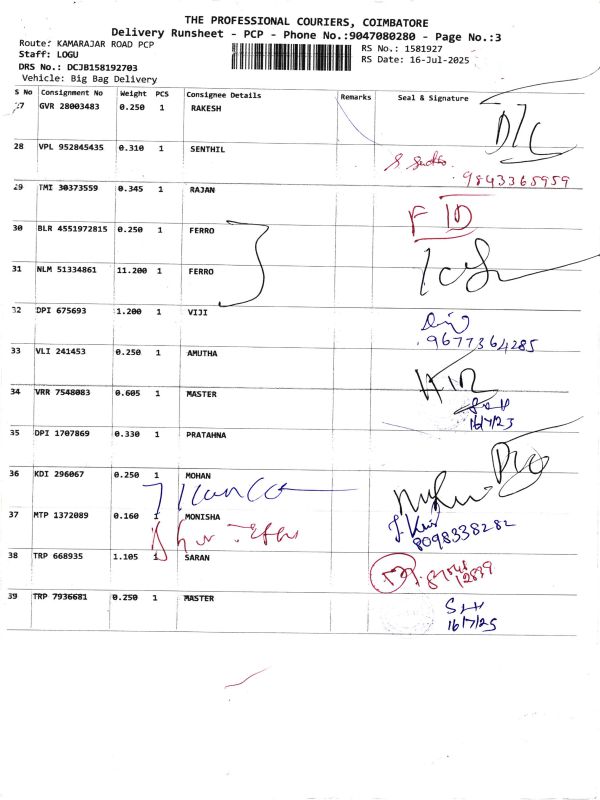 THE PROFESSIONAL COURIERS, COIMBATORE
Delivery Runsheet - PCP - Phone No.:9047080280 - Page No.:3
Route: KAMARAJAR ROAD PCP
Staff: LOGU
DRS No.: DCJB158192703
Vehicle: Big Bag Delivery
RS No.: 1581927
RS Date: 16-Jul-2025
S No Consignment No Weight PCS Consignee Details Remarks Seal & Signature
27 GVR 28003483 0.250 1 RAKESH D/C
28 VPL 952845435 0.310 1 SENTHIL
9843365959
29 TMI 30373559 0.345 1 RAJAN
30 BLR 4551972815 0.250 1 FERRO
31 NLM 51334861 11.200 1 FERRO
32 DPI 675693 1.200 1 VIJI
9677364285
33 VLI 241453 0.250 1 AMUTHA
34 VRR 7548083 0.605 1 MASTER
16/7/25
35 DPI 1707869 0.330 1 PRATAHNA
36 KDI 296067 0.250 1 MOHAN
37 MTP 1372089 0.160 1 MONISHA
8098338282
38 TRP 668935 1.105 1 SARAN
39 TRP 7936681 0.250 1 MASTER
16/7/25